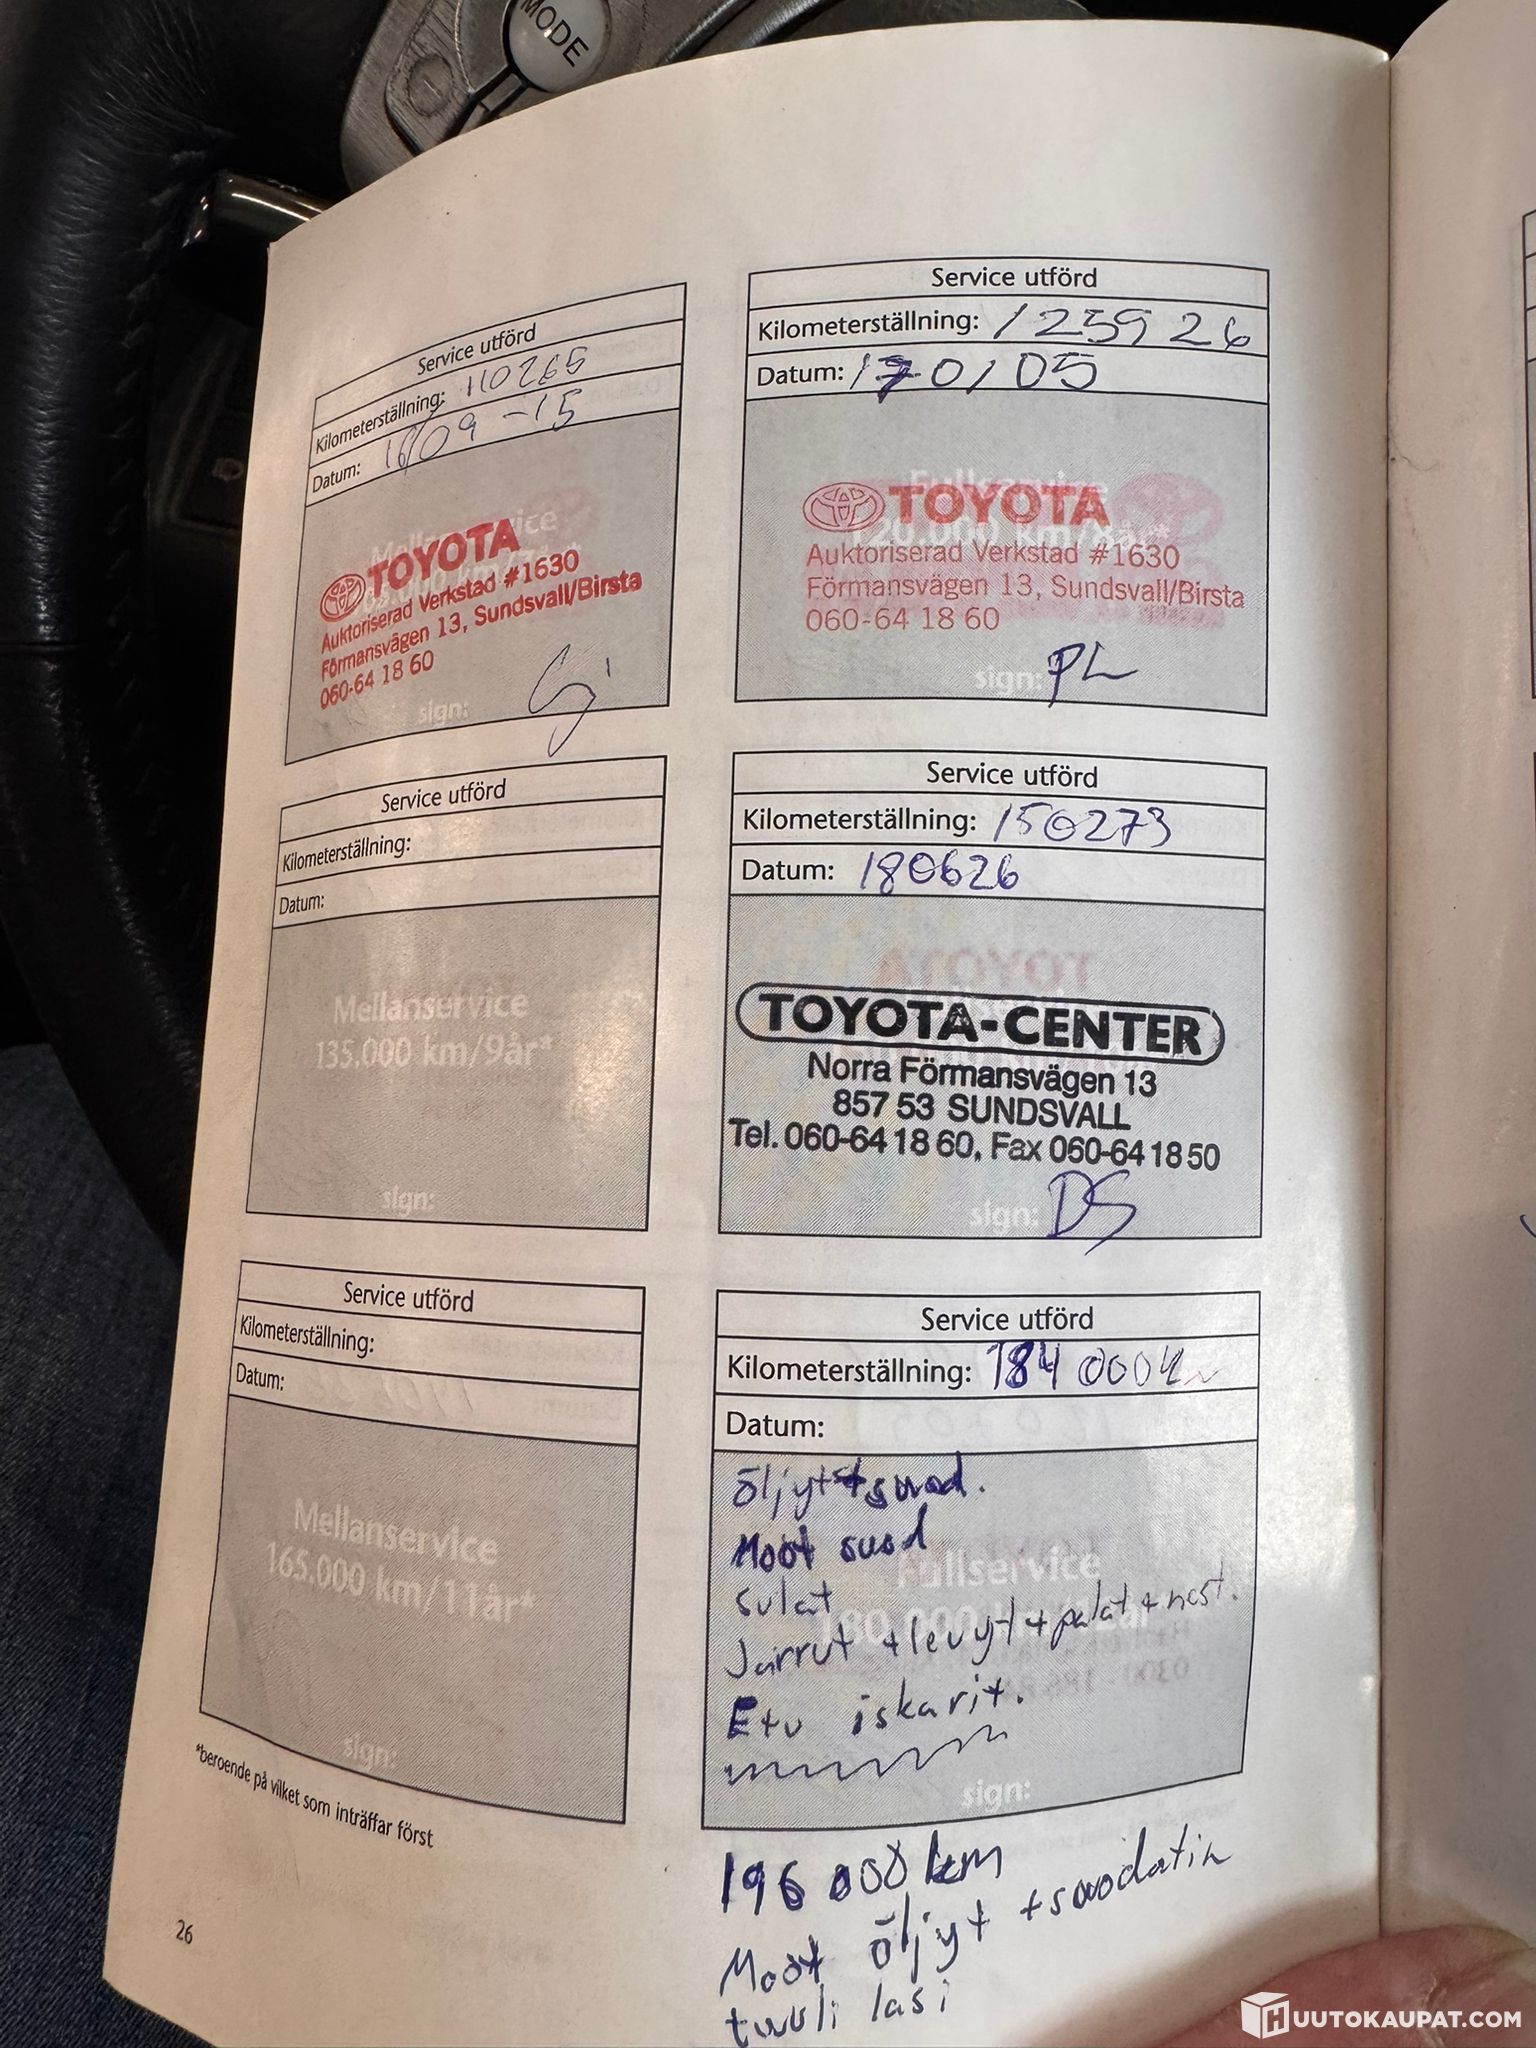 MODE
Service utförd
Kilometerställning: 110265
Datum: 16/09-15
Mellanservice
TOYOTA
Auktoriserad Verkstad #1630
Förmansvägen 13, Sundsvall/Birsta
060-64 18 60
sign:
Service utförd
Kilometerställning: 125926
Datum: 170105
Fullservice
120.000 km/8år*
TOYOTA
Auktoriserad Verkstad #1630
Förmansvägen 13, Sundsvall/Birsta
060-64 18 60
sign: PL
Service utförd
Kilometerställning:
Datum:
Mellanservice
135.000 km/9år*
sign:
Service utförd
Kilometerställning: 150273
Datum: 180626
TOYOTA-CENTER
Norra Förmansvägen 13
857 53 SUNDSVALL
Tel. 060-64 18 60, Fax 060-64 18 50
sign: DS
Service utförd
Kilometerställning:
Datum:
Mellanservice
165.000 km/11år*
sign:
Service utförd
Kilometerställning: 184000
Datum:
Fullservice
180.000 km/12år
öljyt+suod.
Moot suod
sulat
Jarrut +levyt+palat+nest.
Etu iskarit.
sign:
*beroende på vilket som inträffar först
196 000 km
Moot öljyt +suodatin
tuuli lasi
26
HUUTOKAUPAT.COM